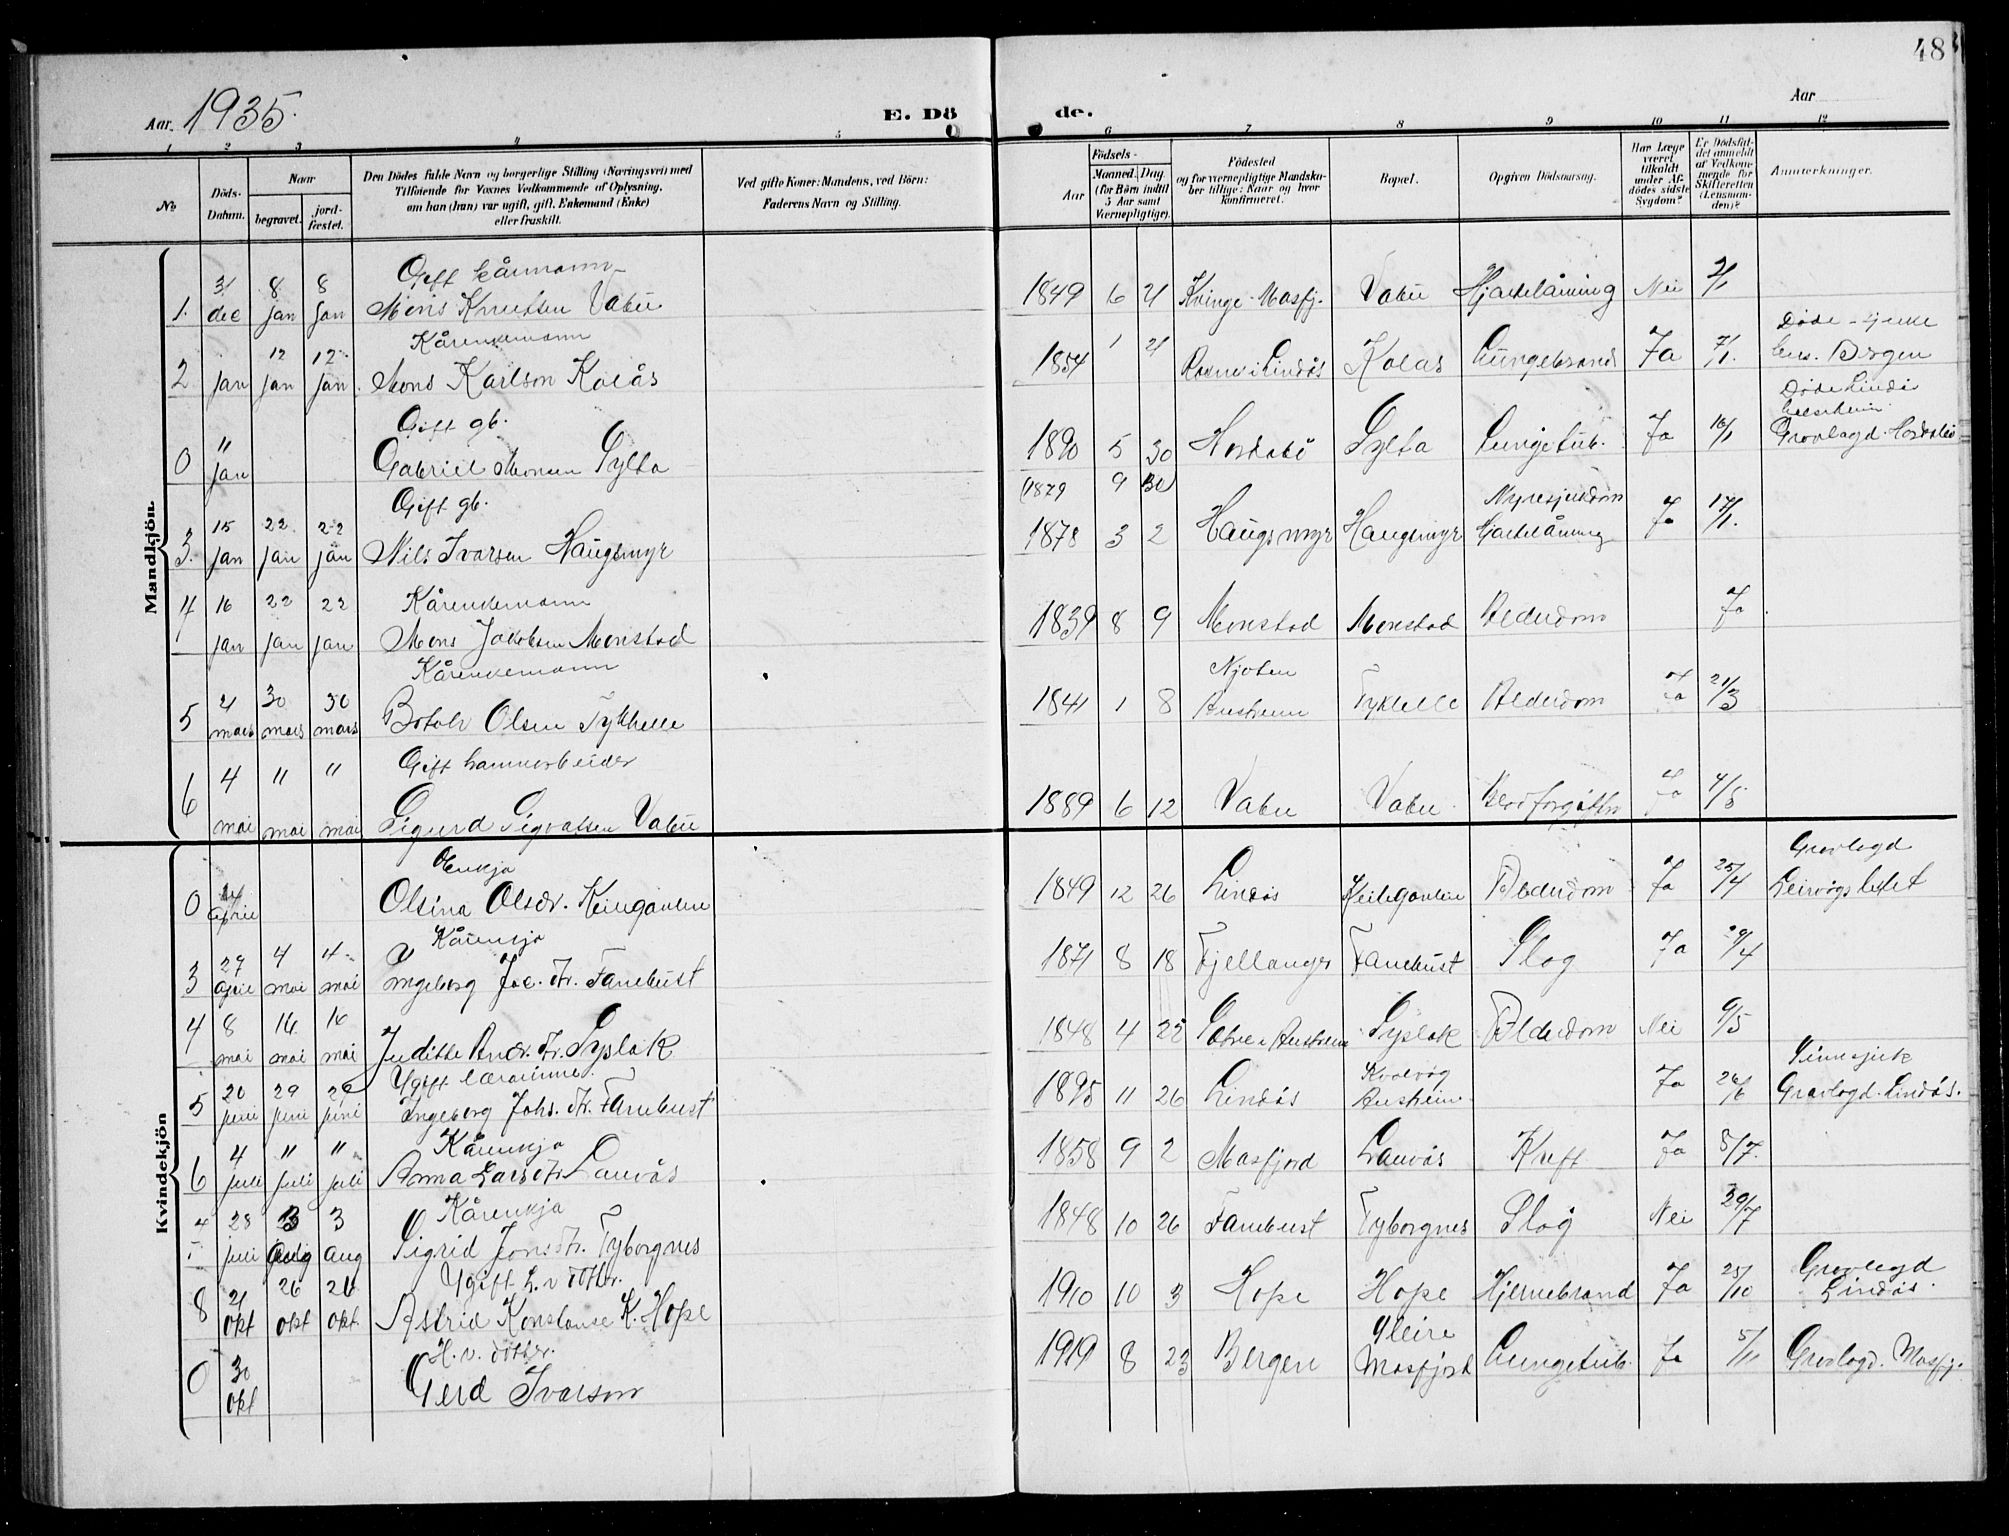 48
Aar. 1935.
E. Dö
de.
Aar
1 2 3 4 5 6 7 8 9 10 11 12
No
Döds-Datum.
Naar
begravet.
jord-fæstet.
Den Dödes fulde Navn og borgerlige Stilling (Næringsvei) med
Tilföiende for Voxnes Vedkommende af Oplysning,
om han (hun) var ugift, gift, Enkemand (Enke)
eller fraskilt.
Ved gifte Koner: Mandens, ved Börn:
Faderens Navn og Stilling.
Födsels-
Aar
Maaned. Dag.
(for Börn indtil
5 Aar samt
Værnepligtige).
Födested
og for værnepligtige Mandska-
ber tillige: Naar og hvor
konfirmeret.
Bopæl.
Opgiven Dödsaarsag.
Har Læge
været
tilkaldt
under Af-
dödes sidste
Sygdom?
Er Dödsfal-
det anmeldt
af Vedkom-
mende for
Skifteretten
(Lensman-
den)?
Anmerkninger.
Mandkjön.
Gift kårmann
1. 31 dec 8 jan 8 jan Mons Knutsen Vabö 1849 6 21 Kvinge Masfj. Vabö Hjartelåming Nei 2/1
Kårenkemann
2 jan 12 jan 12 jan Mons Karlson Kolås 1854 1 21 Lindås Kolås Lungebrand Ja 7/1. Bergen
Gift gb.
0 11 jan Gabriel Monsen Sylta 1890 5 30 Hordabö Sylta Lungetub. Ja 16/1 Gravlagd Hordabö
(1879 9 30)
Gift gb.
3. 15 jan 22 jan 22 jan Nils Ivarsen Haugsmyr 1878 3 2 Haugsmyr Haugsmyr Nyresjukdom Hjartelåming Ja 17/1.
Kårenkemann
4 16 jan 22 jan 22 jan Mons Jakobsen Monstad 1839 8 9 Monstad Monstad Alderdom Ja
Kårenkemann
5 21 mars 30 mars 30 mars Botolv Olsen Tykkhelle 1841 1 8 Njøten Austrheim Tykkhelle Alderdom Ja 21/3
Gift hamnarbeider
6 4 mai 11 mai 11 mai Sigurd Sigvaldsen Vabö 1889 6 12 Vabö Vabö Blodforgiftn Ja 4/5
Kvindekjön
Enkja
0 april Olsina Olsdr. Keilegavlen 1849 12 26 Lindås Keilegavlen Alderdom Ja 25/4 Gravlagd Leirvågsletet
Kårenkja
3 27 april 4 mai 4 mai Ingeborg Jac. dr. Fanebust 1871 8 18 Fjellanger Fanebust Slag Ja 29/4
4 8 mai 16 mai 16 mai Juditte Andr. dr. Syslak 1848 4 25 Austrheim Syslak Alderdom Nei 9/5
Ugift lærarinne
5 20 juni 29 juni 29 juni Ingeborg Johs. dr. Fanebust 1895 11 26 Lindås Kvalvåg Austrheim Ja 26/6 Sinnsjuk Gravlagd. Lindås.
Kårenkja
6 4 juli 11 juli 11 juli Anna Larsdtr Lauvås 1858 9 2 Masfjord Lauvås Kreft Ja 5/7.
Kårenkja
28 juli 3 aug 3 aug Sigrid Jonsdtr. Tyborgnes 1848 10 26 Fanebust Tyborgnes Slag Nei 29/7
Ugift h.v. dotter.
8 21 okt 26 okt 26 okt. Astrid Konstanse K. Hope 1910 10 3 Hope Hope Hjernebrand Ja 25/10 Gravlagd Lindås.
H. v. dotter.
0 30 okt Gerd Ivarson 1919 8 23 Bergen Masfjord Lungetub. Ja 5/11 Gravlagd. Masfj.